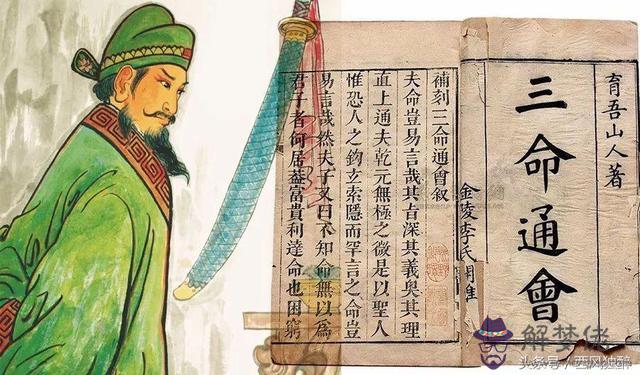 育吾山人著
三命通會
金陵李氏
補刻三命通會叙
夫命豈易言哉其旨深其義奧其理
直上通夫乾元無極之微是以聖人
惟恐人之鉤玄索隱而罕言之命豈
易言哉然夫子又曰不知命無以為
君子者何居葢富貴利達命也困窮
解梦佬
头条号 / 西风独醉